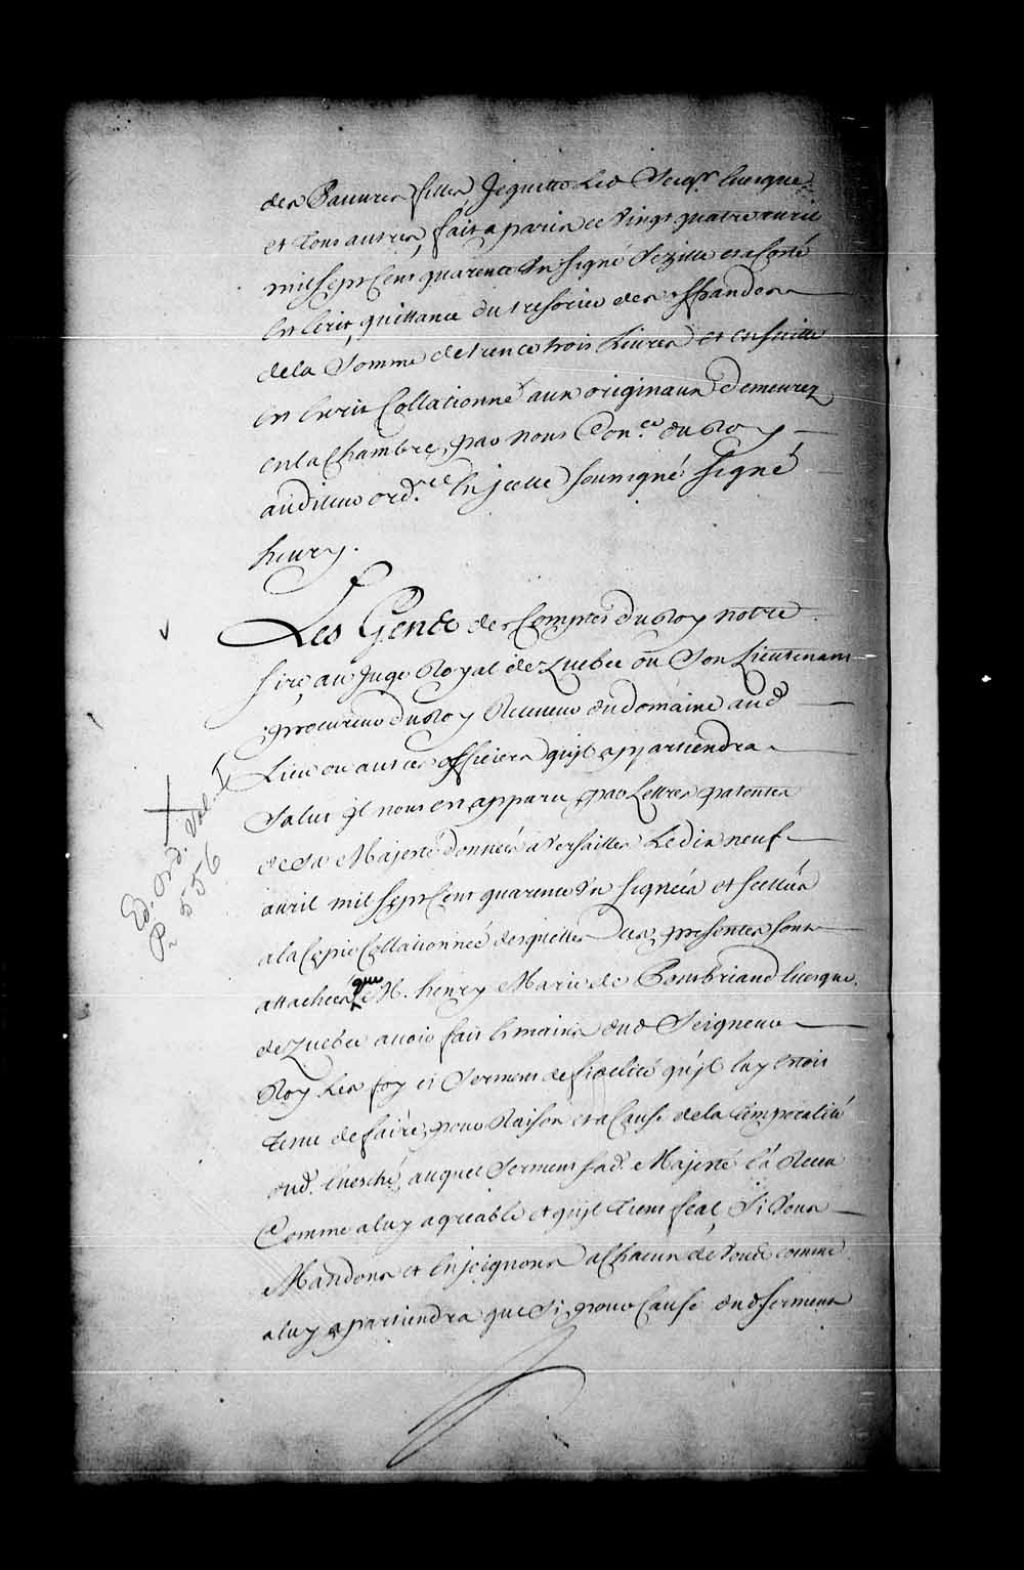 des Pauures filles, Jequitte led Seigr. Euesque
et tous autres, fait a paris ce Vingt quatre auril
mil sept Cent quarente Vn signé Sezille et a Costé
Est Ecrit, quittance du tresorier des offrandes
de la Somme de trente trois Livres et ensuitte
Est Ecrit Collationné aux originaux Demeurez
en la Chambre, par nous Con.er du Roy
auditeur ord.re En jcelle soussigné signé
henry.
Les Gens des Comptes du Roy notre
sire, au Juge Royal de Quebec ou Son Lieutenant
procureur du Roy Receueur du domaine aud
Lieu ou autres officiers qu'jl appartiendra
Salut jl nous est apparu, par Lettres patentes
de Sa Majesté données a Versailles Le dix neuf
auril mil sept Cent quarente Vn signées et scellées
a la Copie Collationnée desquelles Ces presentes sont
attachées que M. henry Marie de Pontbriand Euesque
de Quebec auoir fait Es mains dud Seigneur
Roy Les foy et Serment de fidelité qu'jl luy Estoit
tenu de faire, pour Raison et a Cause de la temporalité
dud. Euesché, auquel Serment sad. Majesté L'a Receu
Comme a luy agreable et qu'jl tient feal, Si Vous
Mandons et Enjoignons a Chacun de Vous comme
a luy apartiendra que Si, pour Cause dud serment
Ed. Ord. Vol. I
P. 556